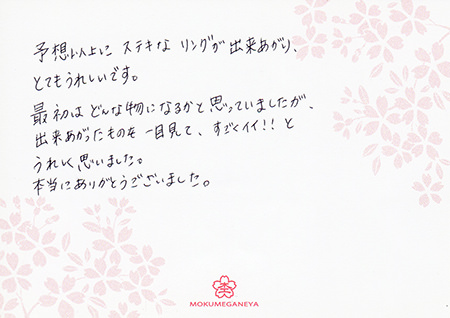 予想以上に ステキな リングが 出来あがり、
とてもうれしいです。
最初は どんな物になるかと思っていましたが、
出来あがったものを 一目見て、すごくイイ!! と
うれしく思いました。
本当にありがとうございました。
MOKUMEGANEYA